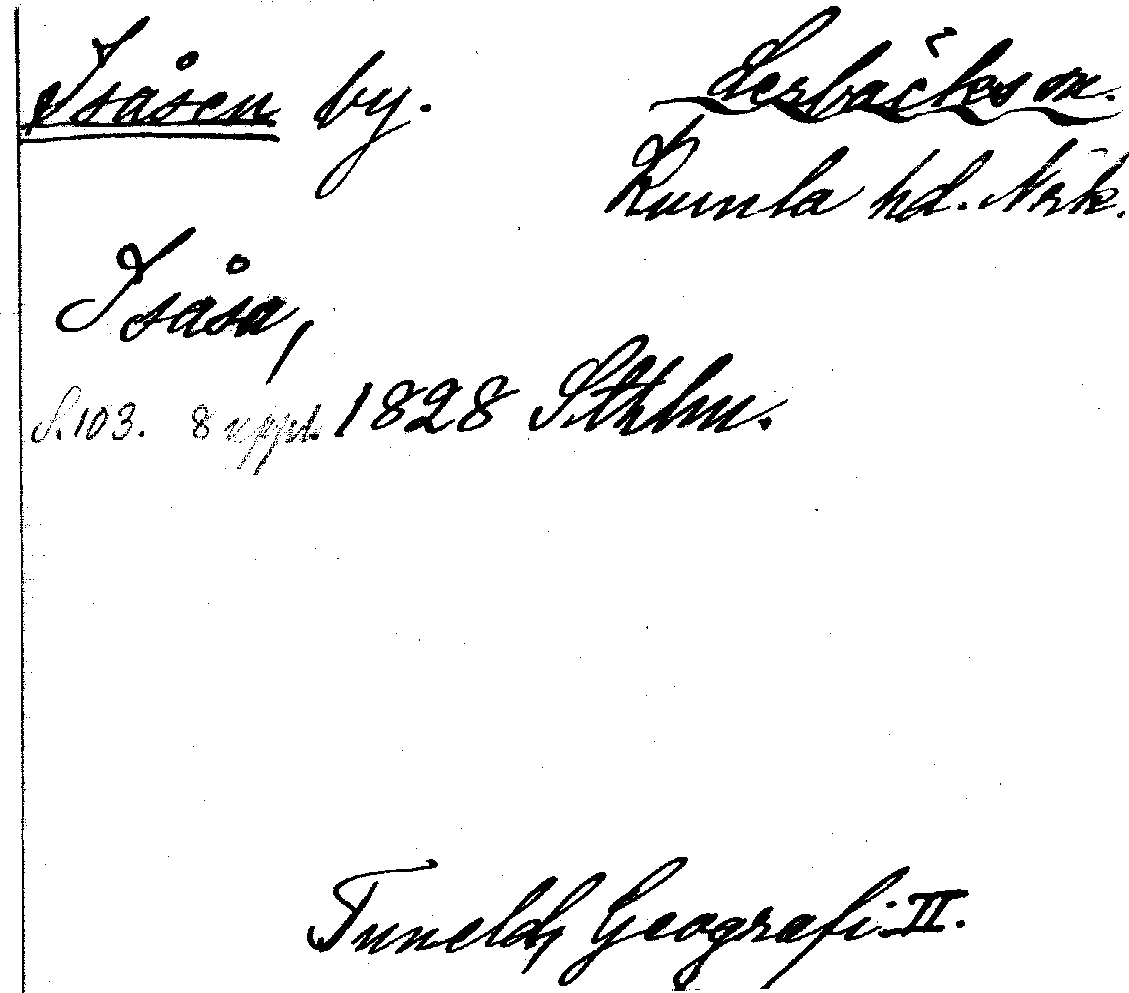 Isåsen by. Lerbäcks sn.
Kumla hd. Nrk.
Isåsa,
S. 103. 8 uppl. 1828 Sthlm.
Tuneld, Geografi II.